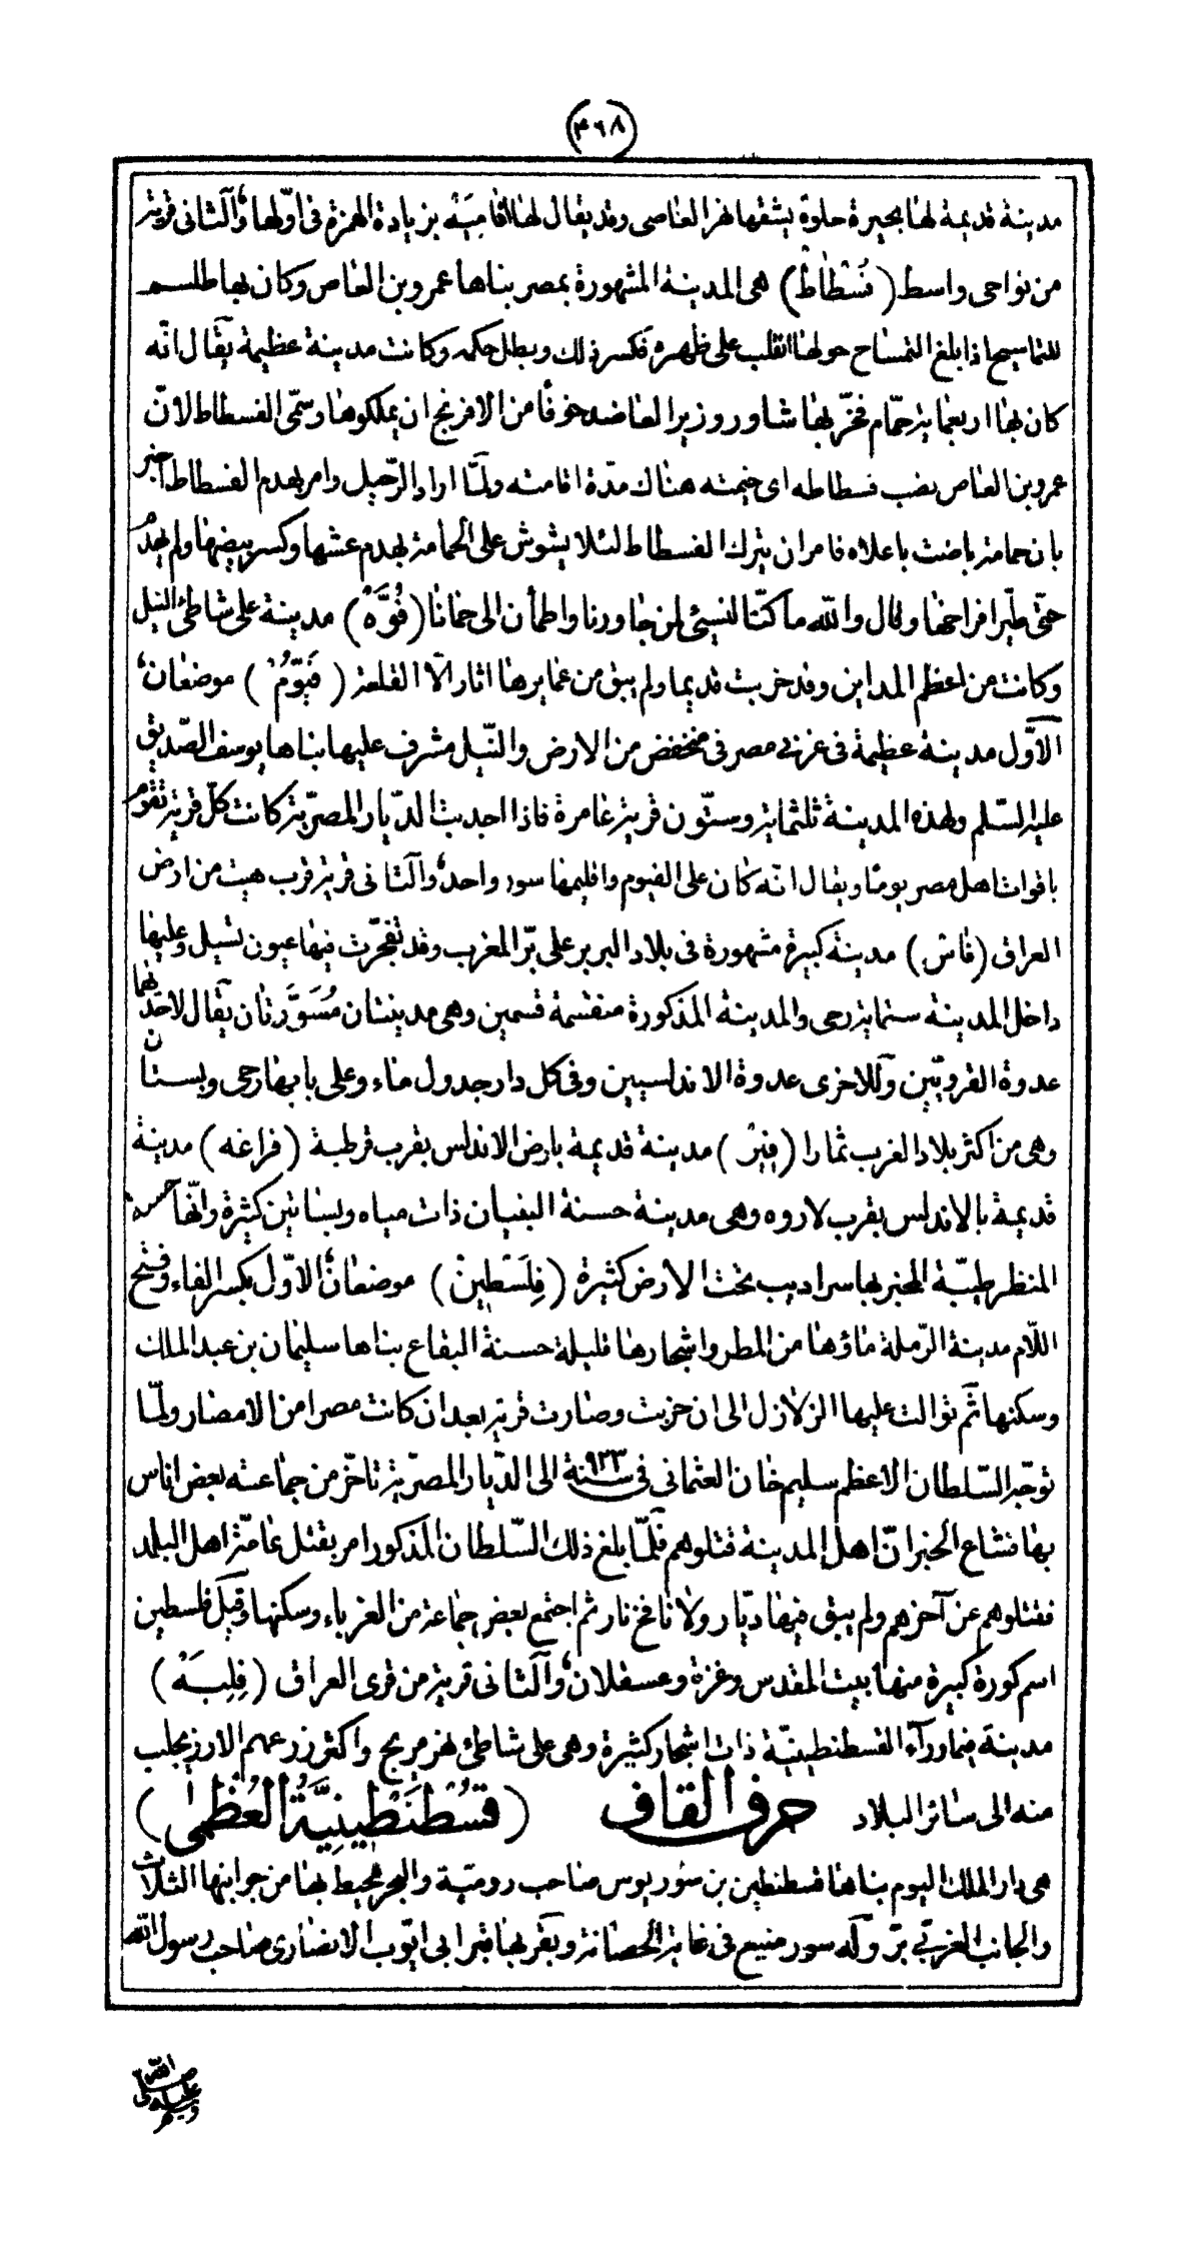 (٤٦٨)
مدينة قديمة لها بحيرة حلوة يشقها نهر العاصى وقد يقال لها افامِيَة بزيادة الهمزة فى اوّلها والثانى قرية
من نواحى واسط (فُسْطاطْ) هى المدينة المشهورة بمصر بناها عمرو بن العاص وكان بها طلسم
للتماسيح اذا بلغ التمساح حولها انقلب على ظهره فكسر ذلك وبطل حكمه وكانت مدينة عظيمة يقال انّه
كان بها اربعماية حمّام فخرّبها شاور وزير العاضد خوفًا من الافرنج ان يملكوها وسمّى الفسطاط لانّ
عمرو بن العاص نصب فسطاطه اى خيمته هناك مدّة اقامته ولمّا اراد الرّحيل وامر بهدم الفسطاط اخبر
بان حمامة باضت باعلاه فامر ان يترك الفسطاط لئلا يشوش على الحمامة بهدم عشها وكسر بيضها ولم يهدّ
حتّى طيّر افراخها وقال والله ما كنّا لنسيئ لمن جاورنا واطمأن الى حمانا (فُوَّهْ) مدينة على شاطئ النيل
وكانت من اعظم المداين وقد خربت قديما ولم يبق من عمايرها اثار الّا القلعة (فَيّومُ) موضعان
الآوّل مدينة عظيمة فى غربى مصر فى منخفض من الارض والنّيل مشرف عليها بناها يوسف الصّديق
عليه السّلم ولهذه المدينة ثلثماية وستّون قرية عامرة فاذا اجدبت الدّيار المصرّية كانت كلّ قرية تقوم
باقوات اهل مصر يومًا ويقال انّه كان على الفيوم واقليمها سور واحد والثانى قرية قرب هيت من ارض
العراق (فاش) مدينة كبيرة مشهورة فى بلاد البربر على برّ المغرب وقد تفجّرت فيها عيون تسيل وعليها
داخل المدينة ستماية رحى والمدينة المذكورة منقسمة قسمين وهى مدينتان مُسَوَّرتان يقال لاحدهما
عدوة القرويّين وللاخرى عدوة الاندلسيين وفى كل دار جدول ماء وعلى بابها رحى وبستان
وهى من اكثر بلاد الغرب ثمارا ( ) مدينة قديمة بارض الاندلس بقرب قرطبة (فراغه) مدينة
قديمة بالاندلس بقرب لاروه وهى مدينة حسنة البنيان ذات مياه وبساتين كثيرة وانّها حسنة
المنظر طيبّة المخبر بها سراديب تحت الارض كثيرة (فِلَسْطِينْ) موضعان الاوّل بكسر الفاء وفتح
اللّام مدينة الرّملة ماؤها من المطر واشجارها قليلة حسنة البقاع بناها سليمان بن عبد الملك
وسكنها ثم توالت عليها الزلازل الى ان خربت وصارت قرية بعد ان كانت مصرا من الامصار ولمّا
توجّه السّلطان الاعظم سليم خان العثمانى فى سنة ٩٢٣ الى الدّيار المصرّية تاخّر من جماعته بعض اناس
بها فشاع الخبر انّ اهل المدينة قتلوهم فلمّا بلغ ذلك السّلطان المذكور امر بقتل عامّة اهل البلد
فقتلوهم عن آخرهم ولم يبق فيها ديّار ولا نافخ نار ثم اجتمع بعض جماعة من الغرباء وسكنها وقيل فلسطين
اسم كورة كبيرة منها بيت المقدس وغزة وعسقلان والثانى قرية من قرى العراق (فِلِبَهْ)
مدينة فيما ورآء القسطنطينيّة ذات اشجار كثيرة وهى على شاطئ نهر مريج واكثر زرعهم الارز يجلب
منه الى سائر البلاد حرف القاف (قُسْطَنْطِينِيَّةُ العُظْمٰى)
هى دار الملك اليوم بناها قسطنطين بن سوريوس صاحب روميّة والبحر محيط بها من جوابنها الثلاث
والجانب الغربى برّ وله سور منيع فى غاية الحصانة وبقربها قبر ابى ايّوب الانصارى صاحب رسول الله
صلى الله عليه وسلم